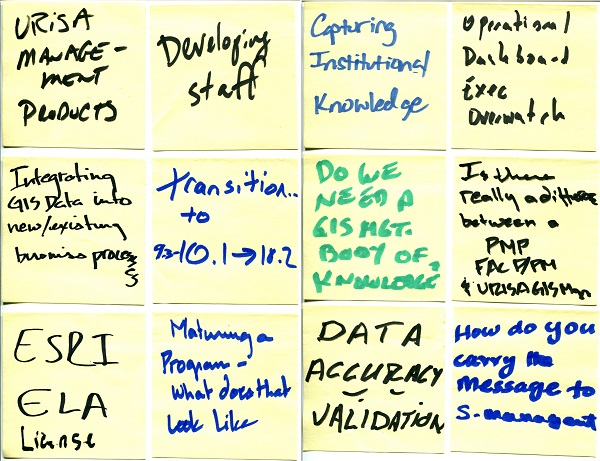 URISA
MANAGE-
MENT
PRODUCTS
Developing
staff
Capturing
Institutional
Knowledge
Operational
Dashboard
Exec
Overwatch
Integrating
GIS Data into
new/existing
business process
transition..
to
9.3-10.1→18.2
DO WE
NEED A
GIS MGT.
BODY OF
KNOWLEDGE?
Is there
really a
between a
PMP
FAC P/PM
& URISA GIS
ESRI
ELA
License
Maturing a
Program -
What does that
Look Like
DATA
ACCURACY
VALIDATION
How do you
carry the
Message to
S-managent